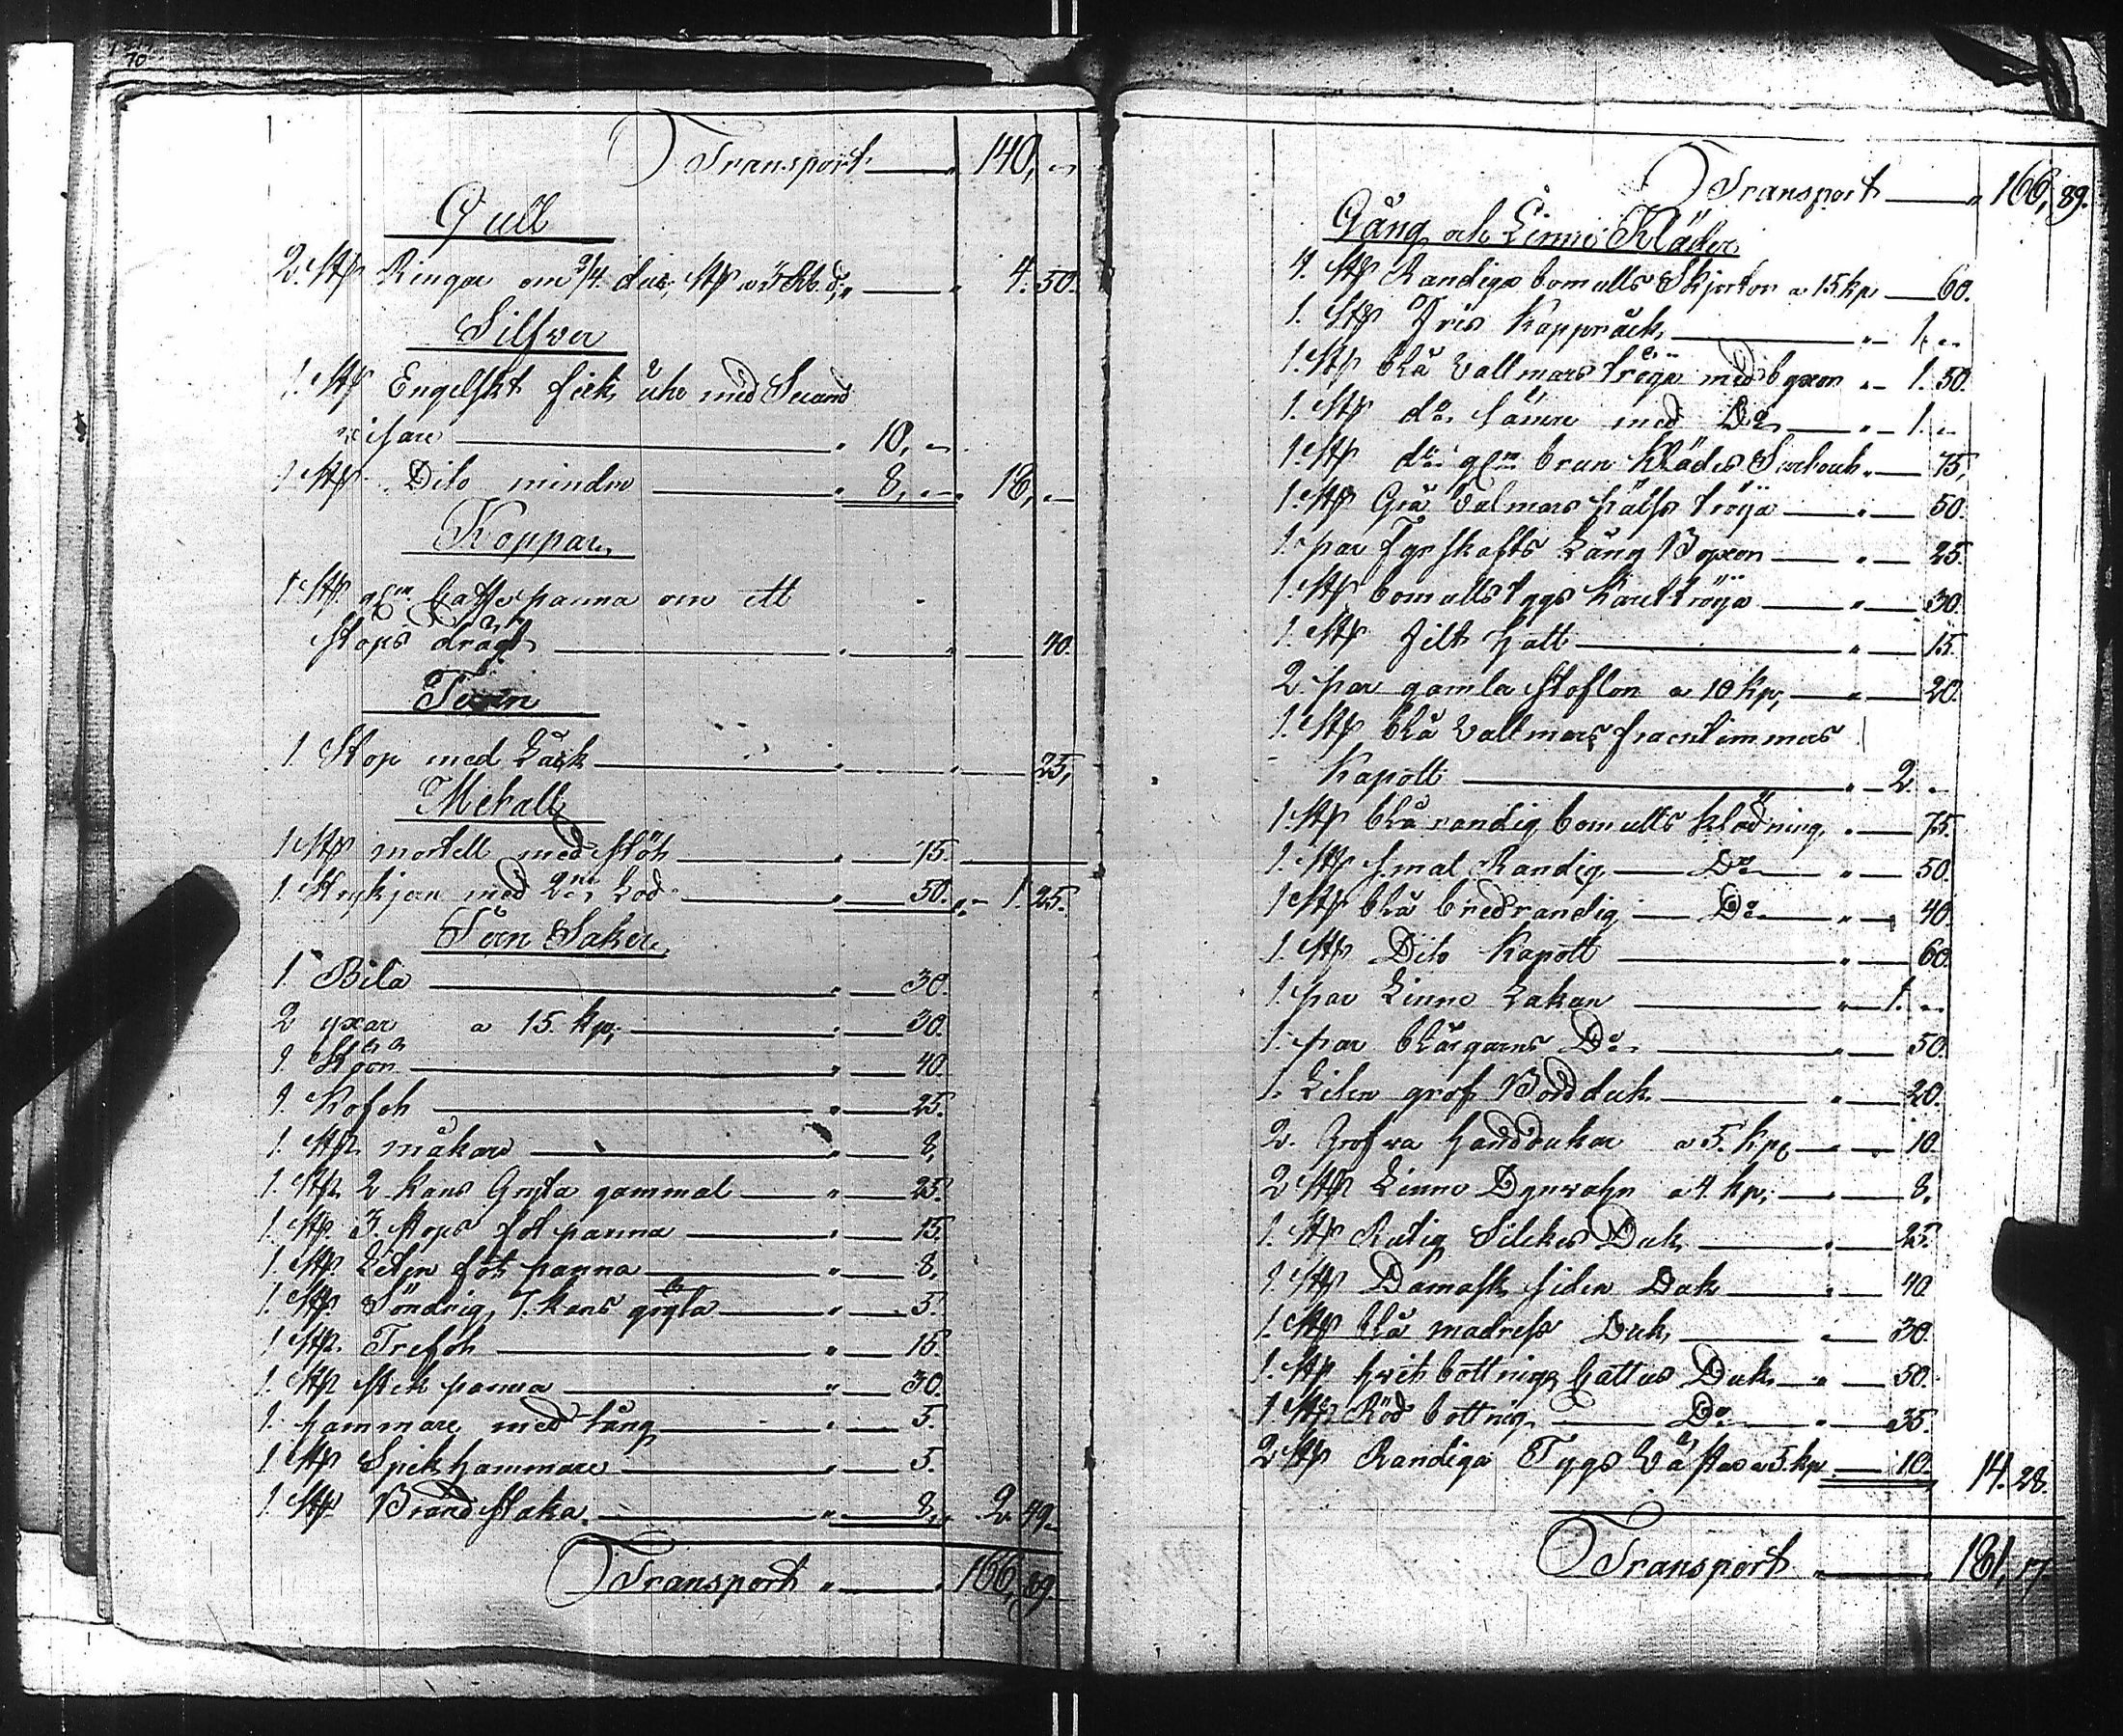 70
Transport — 140, —
Gull
2. St Ringar om 3/4 duc, St a 3 Rb d, — 4. 50.
Silfver
1. St Engelskt fick uhr med Secund
visare — 10, —
1 St Dito mindre — 8, — 18, —
Koppar
1 St gl Caffe panna om ett
Stops drägt — 40.
Tenn
1 Stop med Låck — 25,
Metall
1 St mortell med stöt — 75.
1. Strykjern med 2ne Lod — 50. — 1. 25.
Jern Saker
1 Bila — 30.
2 yxar a 15. kp, — 30.
1 — 40.
1 Kofot — 25.
1. St måkare — 8,
1. St 2 kans Gryta gammal — 25.
1. St 3. stops fot panna — 15.
1 St Liten fot panna — 8,
1. St Söndrig, 7. kans gryta — 5.
1 St Trefot — 15.
1. St stek panna — 30.
1. hammare med tång — 5.
1 St Spik hammare — 5.
1. St Brand staka — 8, 2. 49
Transport — 166, 89
Transport — 166, 89.
Gång och Linne Kläder
4. St Randiga bomulls Skjortor a 15 kp — 60.
1. St Fris Kappråck — 1. —
1. St blå Vallmars tröja med byxor — 1. 50.
1. St do sämre med Do — 1. —
1. St do gl brun Klädes Surtout — 75,
1. St Grå Valmars hälfs tröja — 50.
1. par Fyrskafts Lång Byxor — 25.
1. St bomullstygs Karttröja — 30.
1. St filt hatt — 15.
2. par gamla stoflor a 10 kp, — 20.
1. St blå Vallmars fruentimmers
Kapott — 2. —
1. St blå randig bomulls klädning — 75.
1. St smal Randig — Do — 50.
1 St blå bredrandig — Do — 40.
1. St Dito Kapott — 60.
1. par Linne Lakan — 1. —
1. par blårgarns Do — 50.
1. Liten grof Bordduk — 20.
2. Grofva handdukar a 5. kp — 10.
2 St Linne Dynvahr a 4. kp, — 8,
1. St Rutig Silckes Duk — 25.
1 St Damask siden Duk — 40
1. St blå madress Duk — 30.
1. St hvit bottnig Cattus Duk — 50.
1 St Röd bottnig — Do — 35.
2 St Randiga Tygs Västar a 5. kp — 10. 14. 28.
Transport — 181, 17.